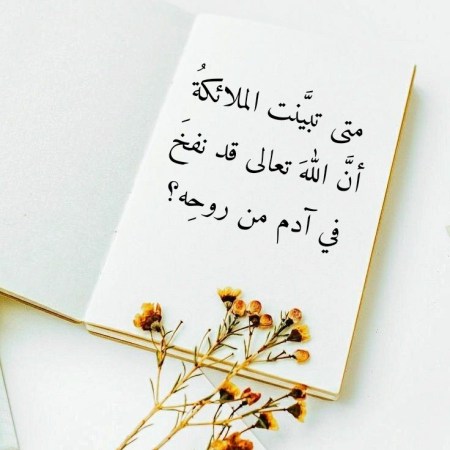 متى تبيَّنت الملائكةُ
أنَّ اللهَ تعالى قد نفخَ
في آدم من روحِه؟